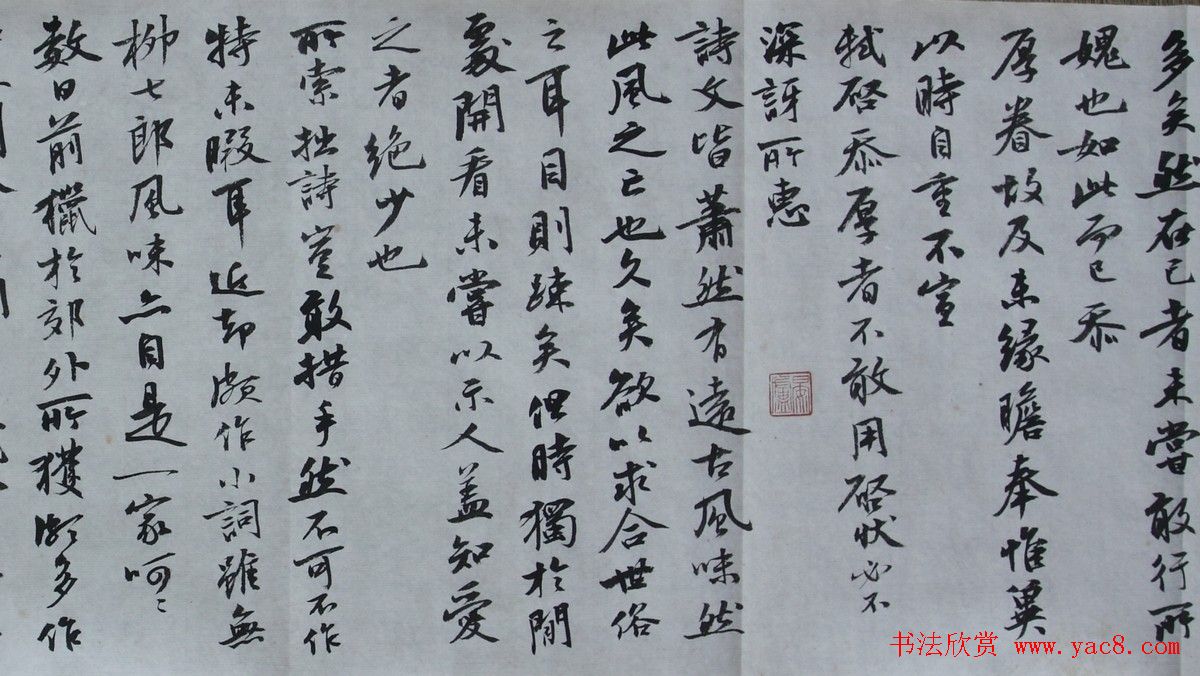 多矣然在己者未嘗敢行所
媿也如此而已忝
厚眷故及未緣瞻奉惟冀
以時自重不宣
軾啓忝厚者不敢用啓狀必不
深訝所惠
詩文皆蕭然有遠古風味然
此風之亡也久矣欲以求合世俗
之耳目則疎矣但時獨於閒
處開看未嘗以示人蓋知愛
之者絶少也
所索拙詩豈敢措手然不可不作
特未暇耳近却頗作小詞雖無
柳七郎風味亦自是一家呵〻
數日前獵於郊外所獲頗多作
书法欣赏 www.yac8.com